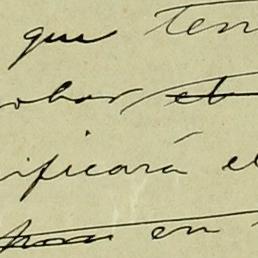 que ten
obar, el
ificará el
en